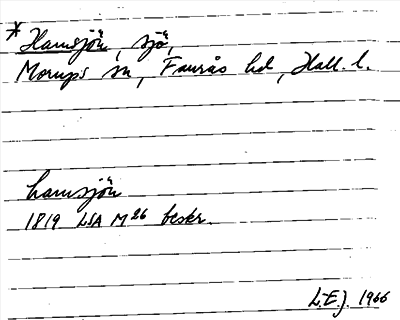 * Hamsjön, sjö,
Morups sn, Faurås hd, Hall. l.
hamsjön
1819 LSA M26 beskr.
L.E.J. 1966